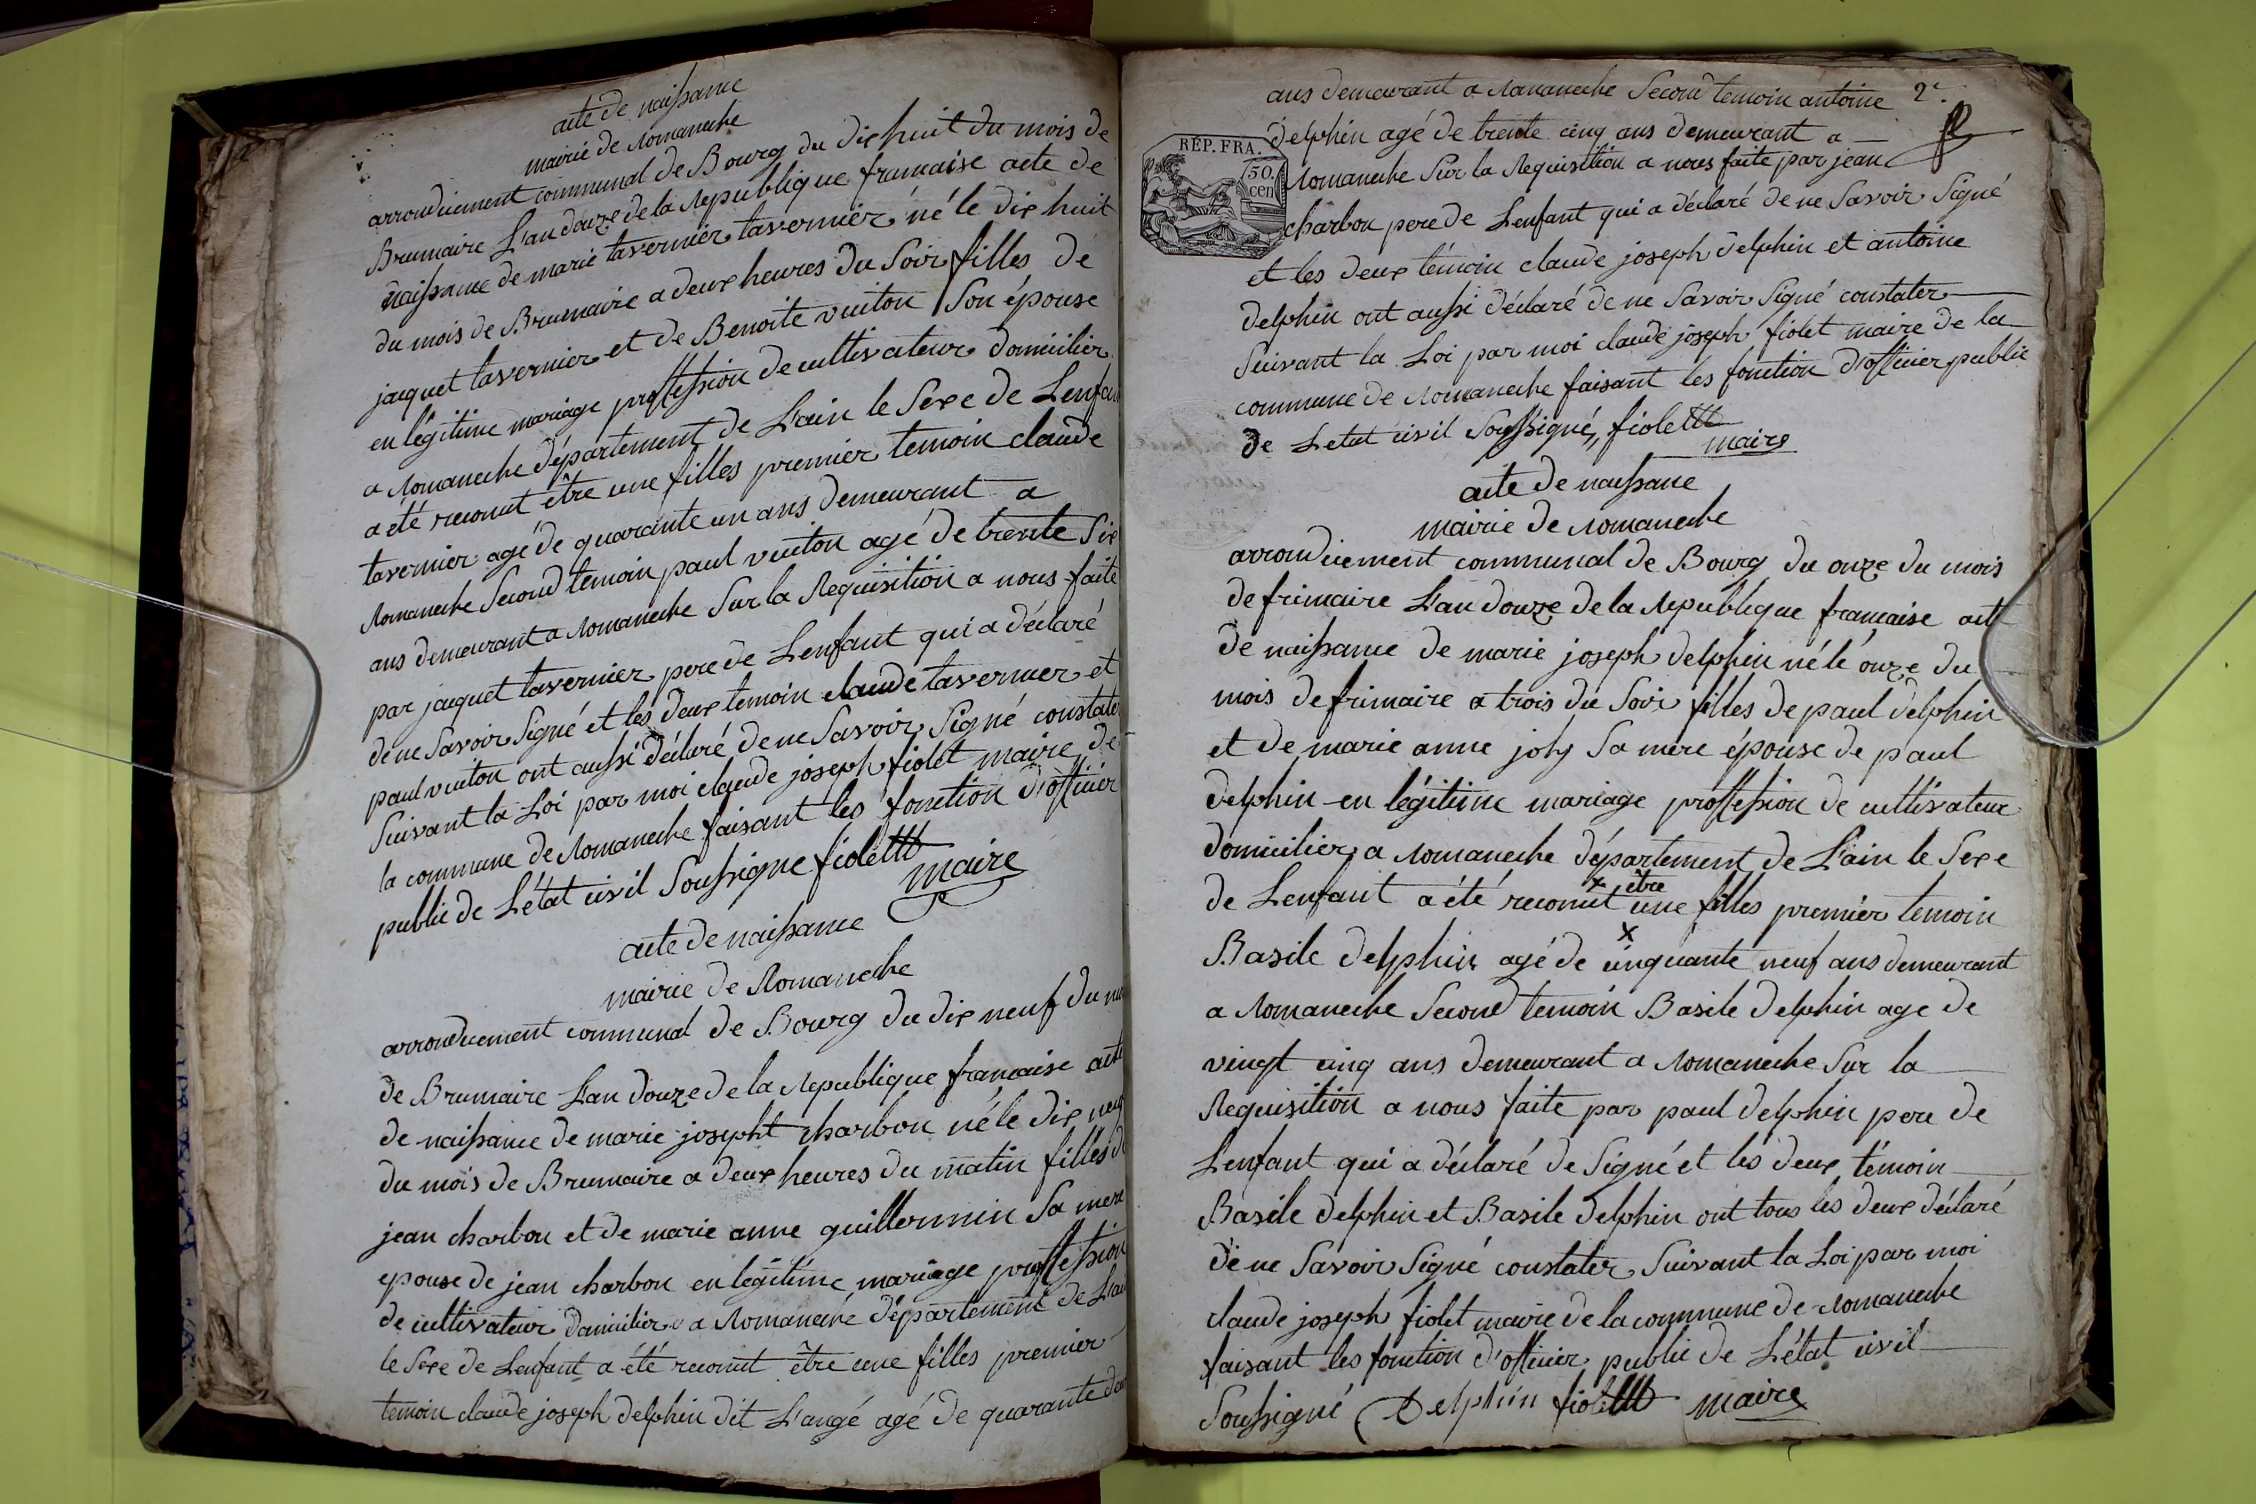 acte de naissance
mairie de Romaneche
arrondicement communal de Bourg du dix huit du mois de
Brumaire L'an douze de la Republique francaise acte de
naissance de marie tavernier tavernier né le dix huit
du mois de Brumaire a deux heures du Soir filles de
jacquet tavernier et de Benoite vuiton Son épouse
en légitime mariage proffession de cultivateur domicilier
a Romaneche département de L'ain le Sexe de Lenfant
a été reconut être une filles premier temoin claude
tavernier agé de quarante un ans demeurant a
Romaneche Second temoin paul vuiton agé de trente Six
ans demeurant a Romaneche Sur la Requisition a nous faite
par jacquet tavernier pere de Lenfant qui a déclaré
de ne Savoir Signé et les deux temoin claude tavernier et
paul vuiton ont aussi déclaré de ne Savoir Signé constater
Suivant la Loi par moi claude joseph fiolet maire de
la commune de Romaneche faisant les fonction d'officier
public de L'état civil Soussigne fiolet maire
acte de naissance
mairie de Romaneche
arrondicement communal de Bourg du dix neuf du
de Brumaire L'an douze de la Republique francaise acte
de naissance de marie josepht charbon né le dix neuf
du mois de Brumaire a deux heures du matin filles de
jean charbon et de marie anne guillermin Sa mere
epouse de jean charbon en legitime mariage proffession
de cultivateur domicilier a Romaneche département de L'ain
le Sexe de Lenfant a été reconut être une filles premier
temoin claude joseph delphin dit L'angé agé de quarante
ans demeurant a Romaneche Second temoin antoine 2e.
REP. FRA.
50. cen
delphin agé de trente cinq ans demeurant a
Romaneche Sur la Requisition a nous faite par jean
charbon pere de Lenfant qui a déclaré de ne Savoir Signé
et les deux témoin claude joseph delphin et antoine
delphin ont aussi déclaré de ne Savoir Signé constater
Suivant la Loi par moi claude joseph fiolet maire de la
commune de Romaneche faisant les fonction d'officier public
de Letat civil Soussigné, fiolet maire
acte de naissane
mairie de Romaneche
arrondicement communal de Bourg du onze du mois
de frimaire L'an douze de la Republique francaise acte
de naissance de marie joseph delphin né le onze du
mois de frimaire a trois du Soir filles de paul delphin
et de marie anne joly Sa mere épouse de paul
delphin en légitime mariage proffession de cultivateur
domicilier a Romaneche département de L'ain le Sexe
de Lenfant a été reconut x être une filles premier temoin
Basile delphin agé de x cinquante neuf ans demeurant
a Romaneche Second temoin Basile delphin age de
vingt cinq ans demeurant a Romaneche Sur la
Requisition a nous faite par paul delphin pere de
Lenfant qui a déclaré de Signé et les deux témoin
Basile delphin et Basile delphin ont tous les deux déclaré
de ne Savoir Signé constater Suivant la Loi par moi
claude joseph fiolet maire de la commune de Romaneche
faisant les fonction d'officier public de L'état civil
Soussigné Delphin fiolet maire